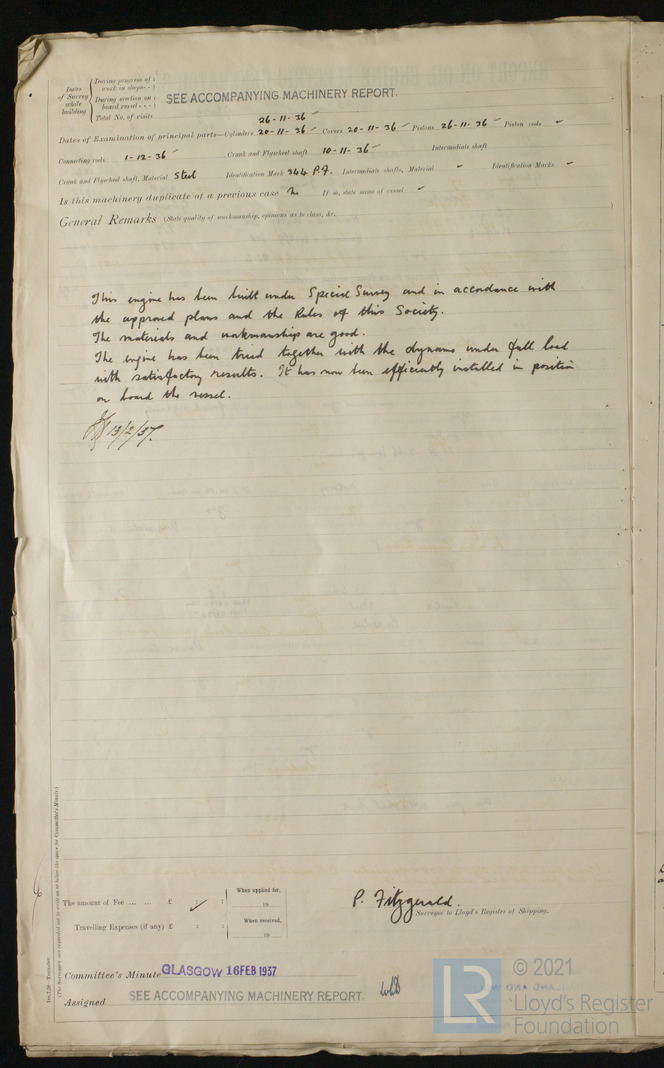 Dates of Survey while building
During progress of work in shops - -
During erection on board vessel - - -
Total No. of visits
SEE ACCOMPANYING MACHINERY REPORT.
26-11-36
Dates of Examination of principal parts—Cylinders 20-11-36 Covers 20-11-36 Pistons 26-11-36 Piston rods
Connecting rods 1-12-36 Crank and Flywheel shaft 10-11-36 Intermediate shaft
Crank and Flywheel shaft, Material Steel Identification Mark 344 P.F. Intermediate shafts, Material Identification Marks
Is this machinery duplicate of a previous case No If so, state name of vessel
General Remarks (State quality of workmanship, opinions as to class, &c.
This engine has been built under Special Survey and in accordance with
the approved plans and the Rules of this Society.
The materials and workmanship are good.
The engine has been tried together with the dynamo under full load
with satisfactory results. It has now been efficiently installed in position
on board the vessel.
13/2/37.
The amount of Fee ... ... £ : :
When applied for,
19
Travelling Expenses (if any) £ : :
When received,
19
P. Fitzgerald.
Surveyor to Lloyd's Register of Shipping.
Committee's Minute GLASGOW 16 FEB 1937
Assigned SEE ACCOMPANYING MACHINERY REPORT.
(The Surveyors are requested not to write on or below the space for Committee's Minute.)
© 2021
LR
Lloyd's Register
Foundation